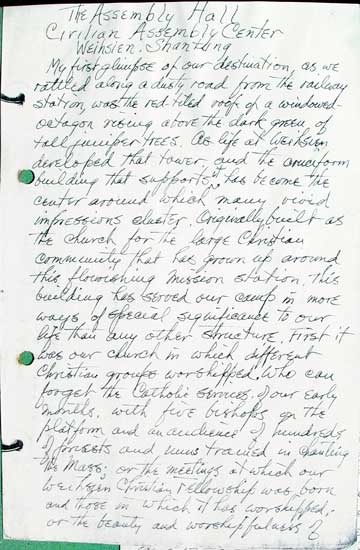 The Assembly Hall
Civilian Assembly Center
Weihsien. Shantung
My first glimpse of our destination, as we
rattled along a dusty road from the railway
station, was the red-tiled roof of a windowed-
octagon rising above the dark green of
tall juniper trees. As life at Weihsien
developed that tower, and the cruciform
building that supports it has become the
center around which many vivid
impressions cluster. Originally built as
the church for the large Christian
community that has grown up around
this flourishing mission station. This
building has served our camp in more
ways of special significance to our
life than any other structure. First it
was our church in which different
Christian groups worshipped. Who can
forget the Catholic services, of our early
months. with five bishops on the
platform and an audience of hundreds
of priests and nuns trained in chanting
the Mass; or the meetings at which our
Weihsien Christian Fellowship was born
and those in which it has worshipped;
or the beauty and worshipfulness of